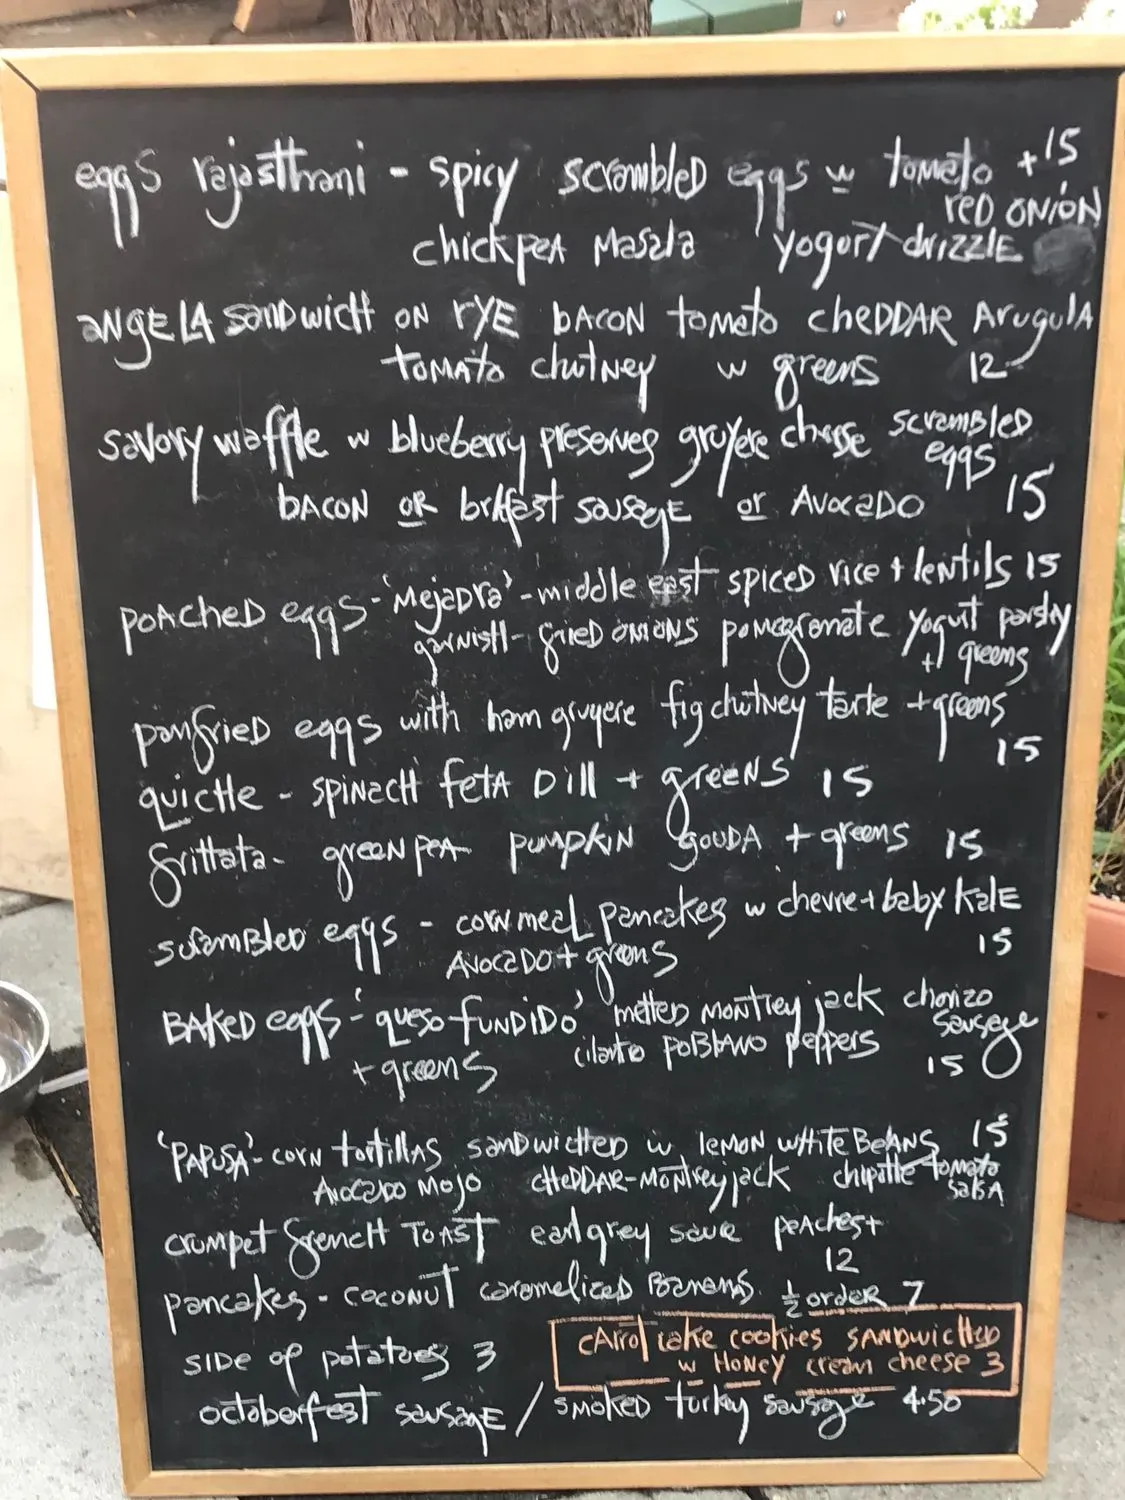 eggs rajasthani - spicy scrambled eggs w tomato + 15
RED ONION
chickpea masala yogurt drizzle
ANGELA sandwich on RYE BACON tomato cheDDAR ArugulA
tomato chutney w greens 12
savory waffle w blueberry preserves gruyere cheese scrambled
eggs
BACON OR brkfast sausage or Avocado 15
poached eggs - 'Mejadra' - middle east spiced rice + lentils 15
garnish - fried onions pomegranate yogurt parsley
+ greens
panfried eggs with ham gruyere fig chutney tarte + greens
15
quiche - spinach feta dill + greens 15
frittata - green pea pumpkin gouda + greens 15
scrambled eggs - cornmeal pancakes w chevre + baby kale
Avocado + greens 15
BAKED eggs - 'queso fundido' melted montrey jack chorizo
sausage
+ greens cilantro poblano peppers 15
'PAPUSA' - corn tortillas sandwiched w lemon white beans 15
Avocado mojo cheddar-montrey jack chipotle tomato
salsa
crumpet french toast earl grey peaches +
12
pancakes - coconut caramelized bananas ½ order 7
side of potatoes 3
carrot cake cookies sandwiched
w honey cream cheese 3
octoberfest sausage / smoked turkey sausage 4.50